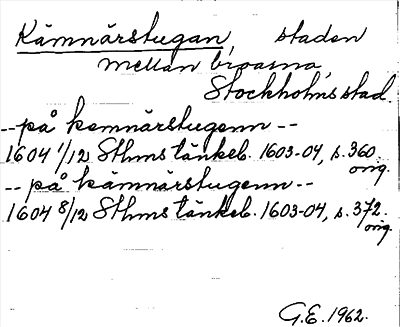 Kämnärstugan, staden
mellan broarna,
Stockholms stad.
-- på kemnärstugenn --
1604 1/12 Sthms tänkeb. 1603-04, s. 360.
orig.
-- på kämnärstugenn --
1604 8/12 Sthms tänkeb. 1603-04, s. 372.
orig.
G.E. 1962.